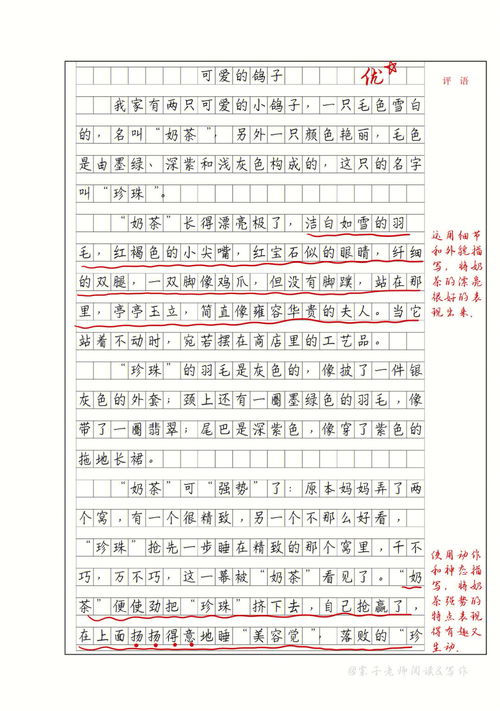 可爱的鸽子
优
评语
我家有两只可爱的小鸽子，一只毛色雪白
的，名叫“奶茶”，另外一只颜色艳丽，毛色
是由墨绿、深紫和浅灰色构成的，这只的名字
叫“珍珠”。
“奶茶”长得漂亮极了，洁白如雪的羽
毛，红褐色的小尖嘴，红宝石似的眼睛，纤细
的双腿，一双脚像鸡爪，但没有脚蹼，站在那
里，亭亭玉立，简直像雍容华贵的夫人。当它
站着不动时，宛若摆在商店里的工艺品。
“珍珠”的羽毛是灰色的，像披了一件银
灰色的外套；颈上还有一圈墨绿色的羽毛，像
带了一圈翡翠；尾巴是深紫色，像穿了紫色的
拖地长裙。
“奶茶”可“强势”了：原本妈妈弄了两
个窝，有一个很精致，另一个不那么好看，
“珍珠”抢先一步睡在精致的那个窝里，千不
巧，万不巧，这一幕被“奶茶”看见了。“奶
茶”便使劲把“珍珠”挤下去，自己抢赢了，
在上面扬扬得意地睡“美容觉”；落败的“珍
运用细节
和外貌描
写，将奶
茶的漂亮
很好的表
现出来.
使用动作
和神态描
写，将奶
茶强势的
特点表现
得有趣又
生动.
@栾子老师阅读&写作